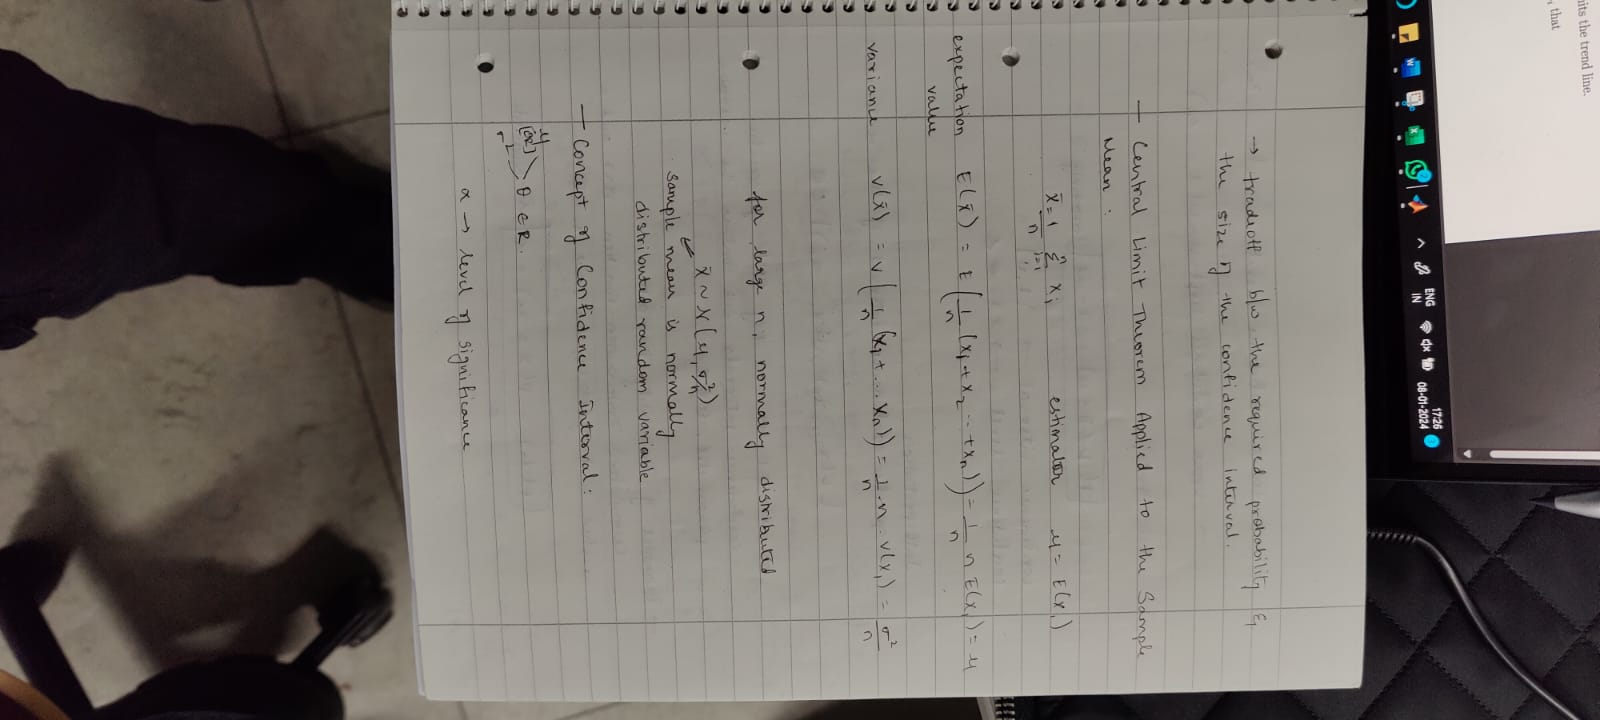 its the trend line.
, that
ENG
IN
17:26
08-01-2024
→ tradeoff b/w the required probability &
the size of the confidence interval.
— Central Limit Theorem Applied to the Sample
Mean :
x̄ = 1/n Σ_{i=1}^{n} Xi estimator μ = E(X1)
expectation value E(x̄) = E(1/n (X1 + X2 ... + Xn)) = 1/n n E(X1) = μ
variance V(x̄) = V(1/n (X1 + ... Xn)) = 1/n . n . V(X1) = σ²/n
for large n, normally distributed
x̄ ~ N(μ, σ²/n)
sample mean is normally
distributed random variable
— Concept of Confidence Interval :
μ
[OR] θ ∈ R.
σ²
α → level of significance